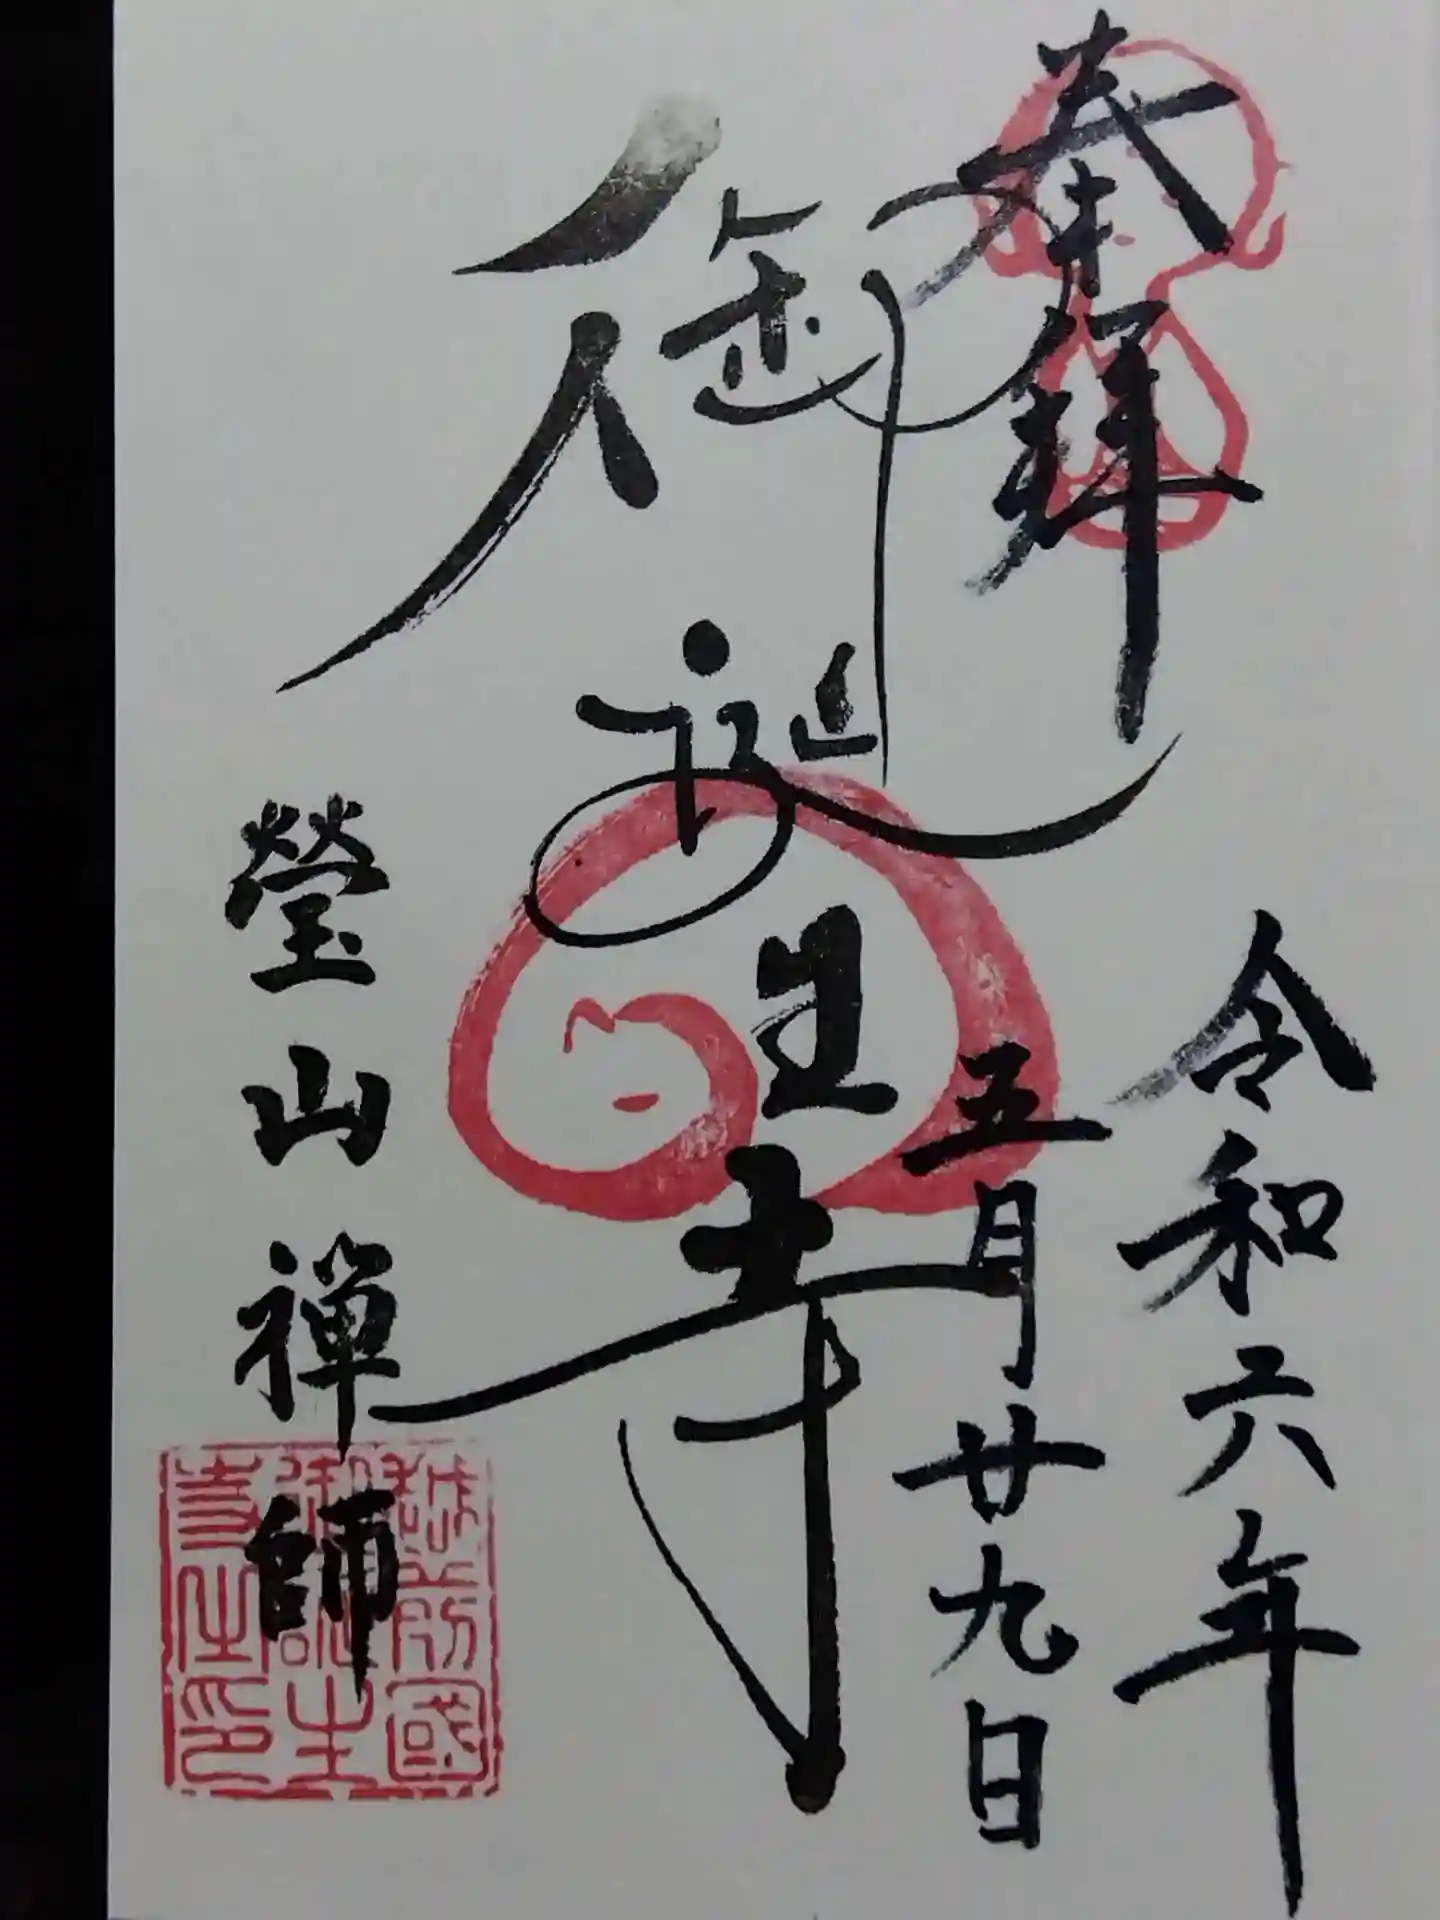 奉拝
令和六年
五月廿九日
御誕生寺
瑩山禅師
越前國
御誕生
寺住印